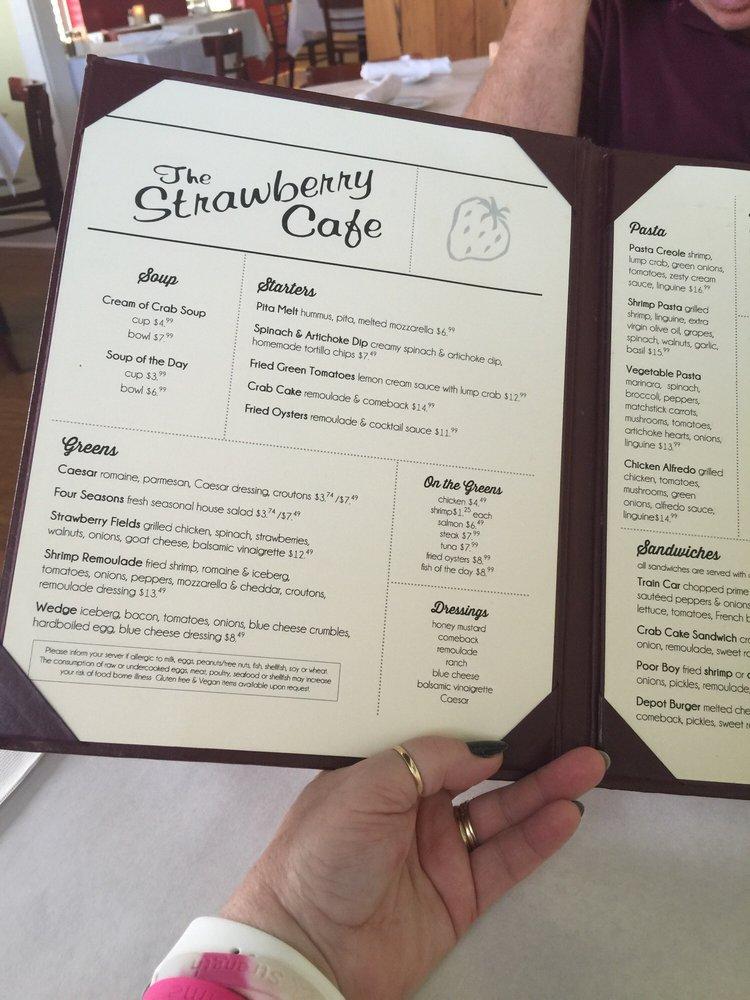 The
Strawberry
Cafe
Soup
Cream of Crab Soup
cup $4.99
bowl $7.99
Soup of the Day
cup $3.99
bowl $6.99
Starters
Pita Melt hummus, pita, melted mozzarella $6.99
Spinach & Artichoke Dip creamy spinach & artichoke dip,
homemade tortilla chips $7.49
Fried Green Tomatoes lemon cream sauce with lump crab $12.99
Crab Cake remoulade & comeback $14.99
Fried Oysters remoulade & cocktail sauce $11.99
Greens
Caesar romaine, parmesan, Caesar dressing, croutons $3.74/$7.49
Four Seasons fresh seasonal house salad $3.74/$7.49
Strawberry Fields grilled chicken, spinach, strawberries,
walnuts, onions, goat cheese, balsamic vinaigrette $12.49
Shrimp Remoulade fried shrimp, romaine & iceberg,
tomatoes, onions, peppers, mozzarella & cheddar, croutons,
remoulade dressing $13.49
Wedge iceberg, bacon, tomatoes, onions, blue cheese crumbles,
hardboiled egg, blue cheese dressing $8.49
Please inform your server if allergic to milk, eggs, peanuts/tree nuts, fish, shellfish, soy or wheat.
The consumption of raw or undercooked eggs, meat, poultry, seafood or shellfish may increase
your risk of food borne illness Gluten free & Vegan items available upon request.
On the Greens
chicken $4.49
shrimp $1.25 each
salmon $6.49
steak $7.99
tuna $7.99
fried oysters $8.99
fish of the day $8.99
Dressings
honey mustard
comeback
remoulade
ranch
blue cheese
balsamic vinaigrette
Caesar
Pasta
Pasta Creole shrimp,
lump crab, green onions,
tomatoes, zesty cream
sauce, linguine $16.99
Shrimp Pasta grilled
shrimp, linguine, extra
virgin olive oil, grapes,
spinach, walnuts, garlic,
basil $15.99
Vegetable Pasta
marinara, spinach,
broccoli, peppers,
matchstick carrots,
mushrooms, tomatoes,
artichoke hearts, onions,
linguine $13.99
Chicken Alfredo grilled
chicken, tomatoes,
mushrooms, green
onions, alfredo sauce,
linguine $14.99
Sandwiches
all sandwiches are served with
Train Car chopped prime
sautéed peppers & onions
lettuce, tomatoes, French b
Crab Cake Sandwich cr
onion, remoulade, sweet r
Poor Boy fried shrimp or
onions, pickles, remoulade,
Depot Burger melted che
comeback, pickles, sweet r